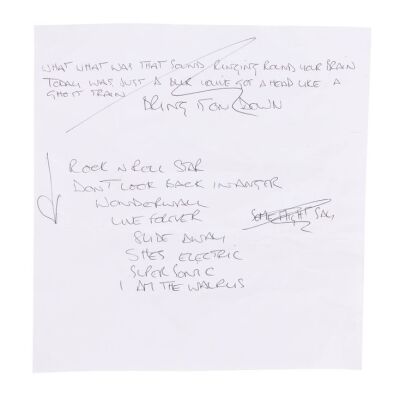 WHAT WHAT WAS THAT SOUND RINGING ROUND YOUR BRAIN
TODAY WAS JUST A BLUR YOU'VE GOT A HEAD LIKE A
GHOST TRAIN
BRING IT ON DOWN
ROCK N ROLL STAR
DON'T LOOK BACK IN ANGER
WONDERWALL
LIVE FOREVER
SOME MIGHT SAY
SLIDE AWAY
SHES ELECTRIC
SUPERSONIC
I AM THE WALRUS